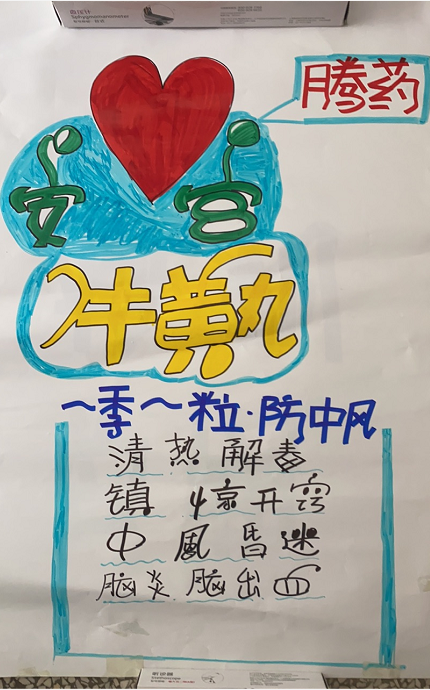 血压计
Sphygmomanometer
腾药
安宫
牛黄丸
一季一粒·防中风
清热解毒
镇惊开窍
中風昏迷
脑炎脑出血